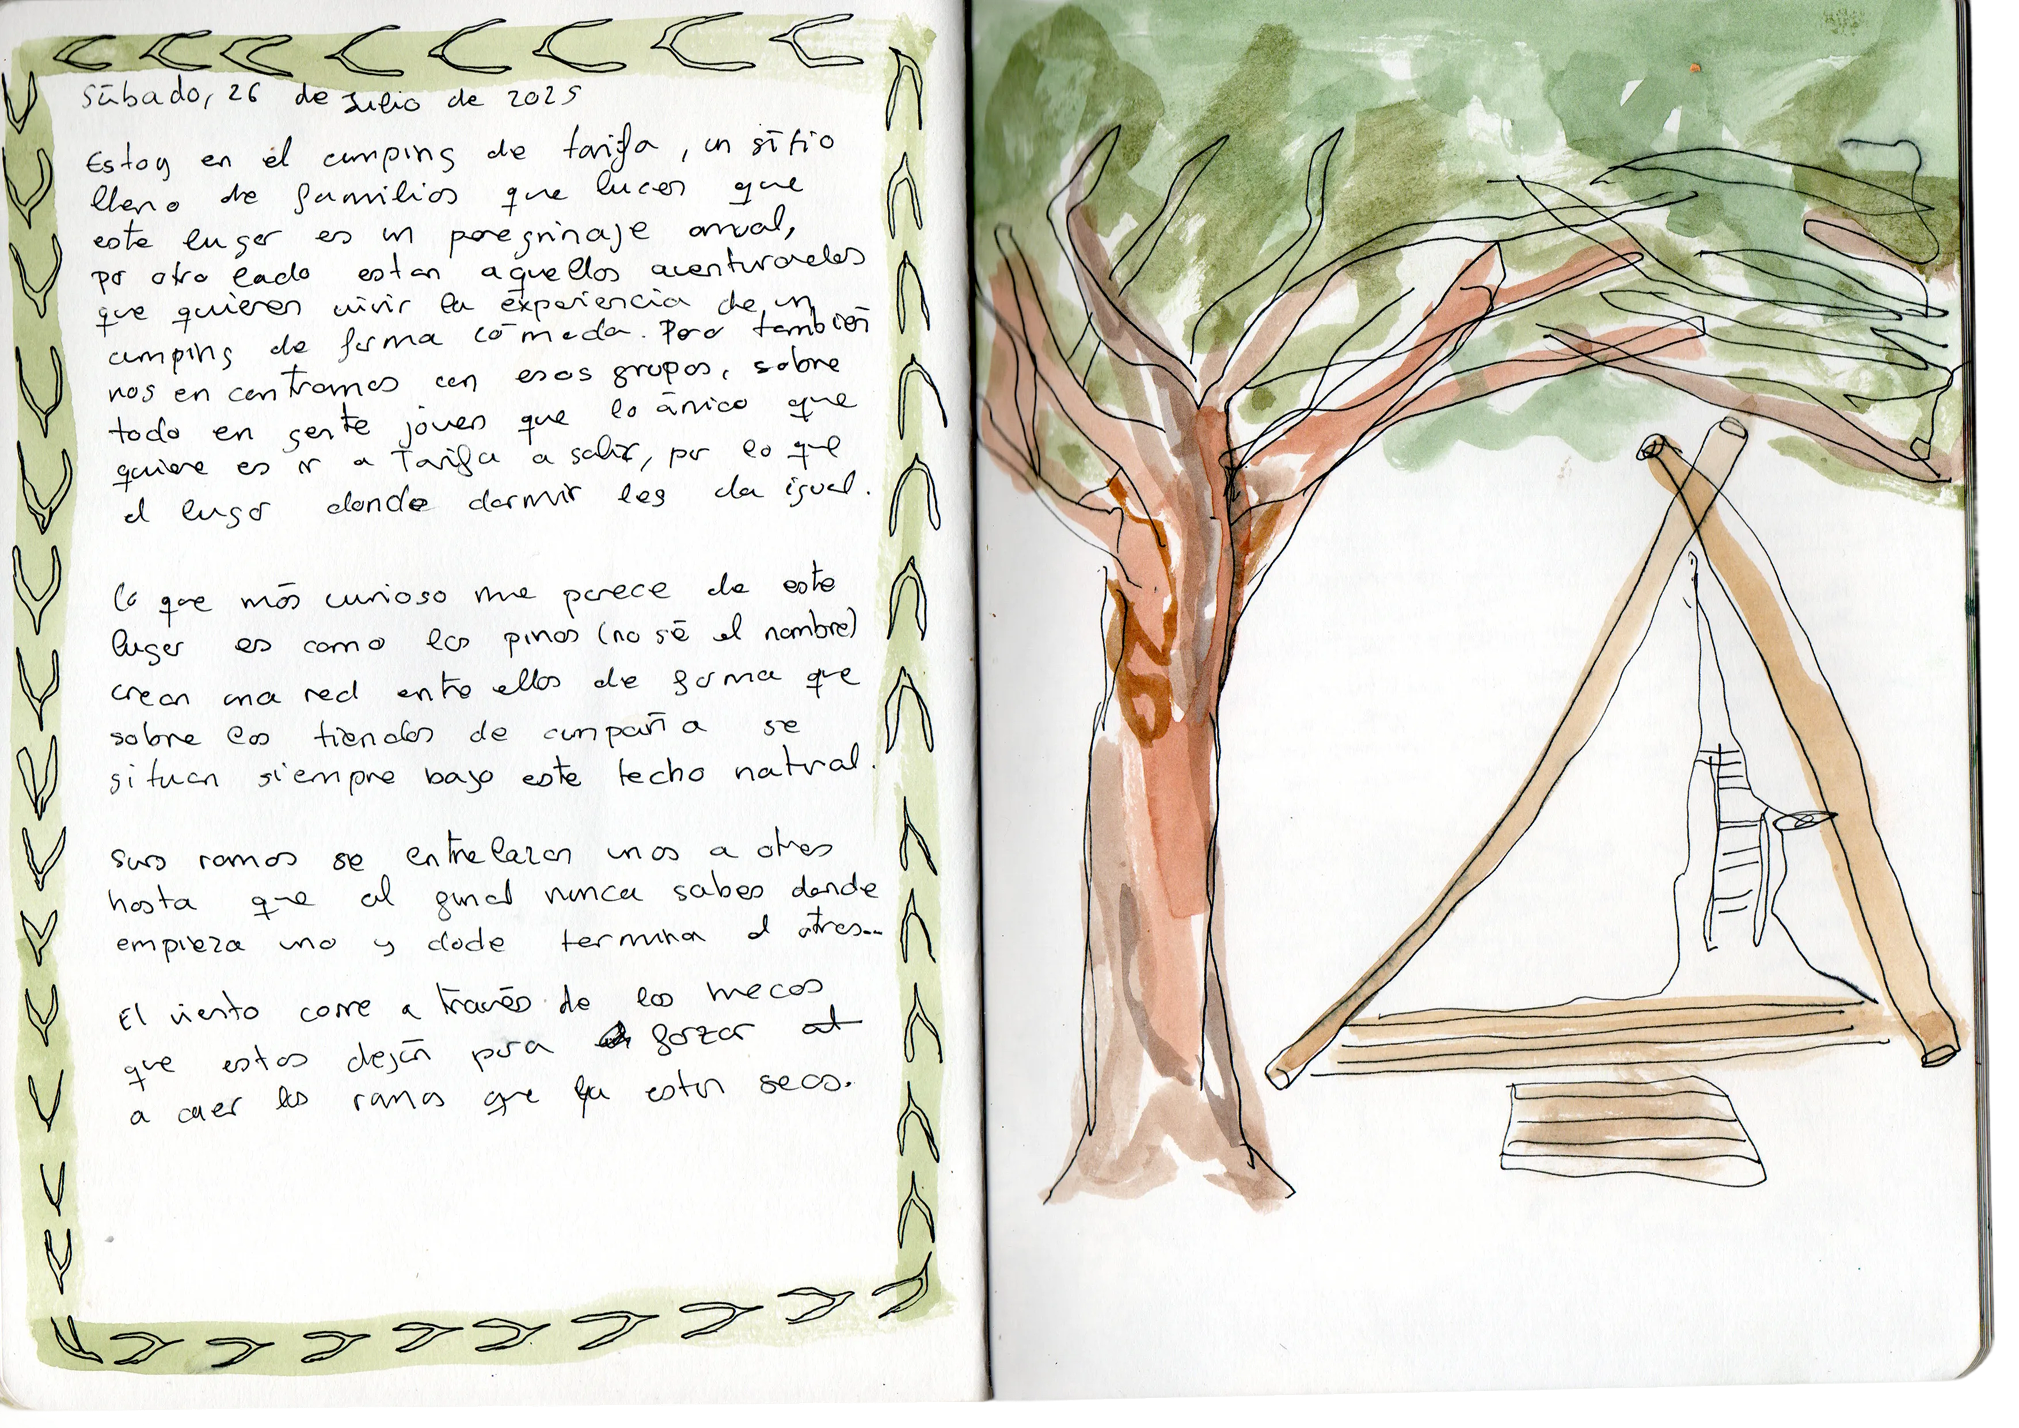 Sábado, 26 de Julio de 2025
Estoy en el camping de tarifa, un sitio
lleno de familias que lucen que
este lugar es un peregrinaje anual,
por otro lado estan aquellos aventurados
que quieren vivir la experiencia de un
camping de forma cómoda. Pero también
nos encontramos con esos grupos, sobre
todo en gente jóven que lo único que
quiere es ir a Tarifa a salir, por lo que
el lugar donde dormir les da igual.
Lo que más curioso me parece de este
lugar es como los pinos (no sé el nombre)
crean una red entre ellos de forma que
sobre las tiendas de campaña se
situan siempre bajo este techo natural.
Sus ramas se entrelazan unas a otras
hasta que al final nunca sabes donde
empieza uno y dode termina el otros...
El viento corre a través de los
que estos dejan para forzar at
a caer las ramas que ya estan secas.